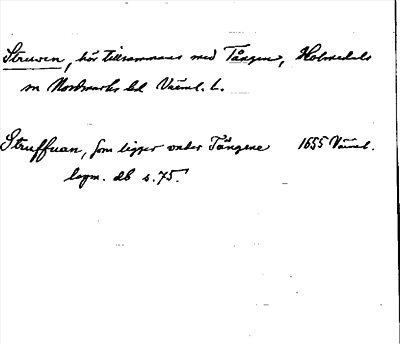 Struven, hör tillsammans med Tången, Holmedals
sn Nordmarks hd Värml. L.
Struffuan, som ligger under Tångene 1655 Värml.
lagm. db s. 75.